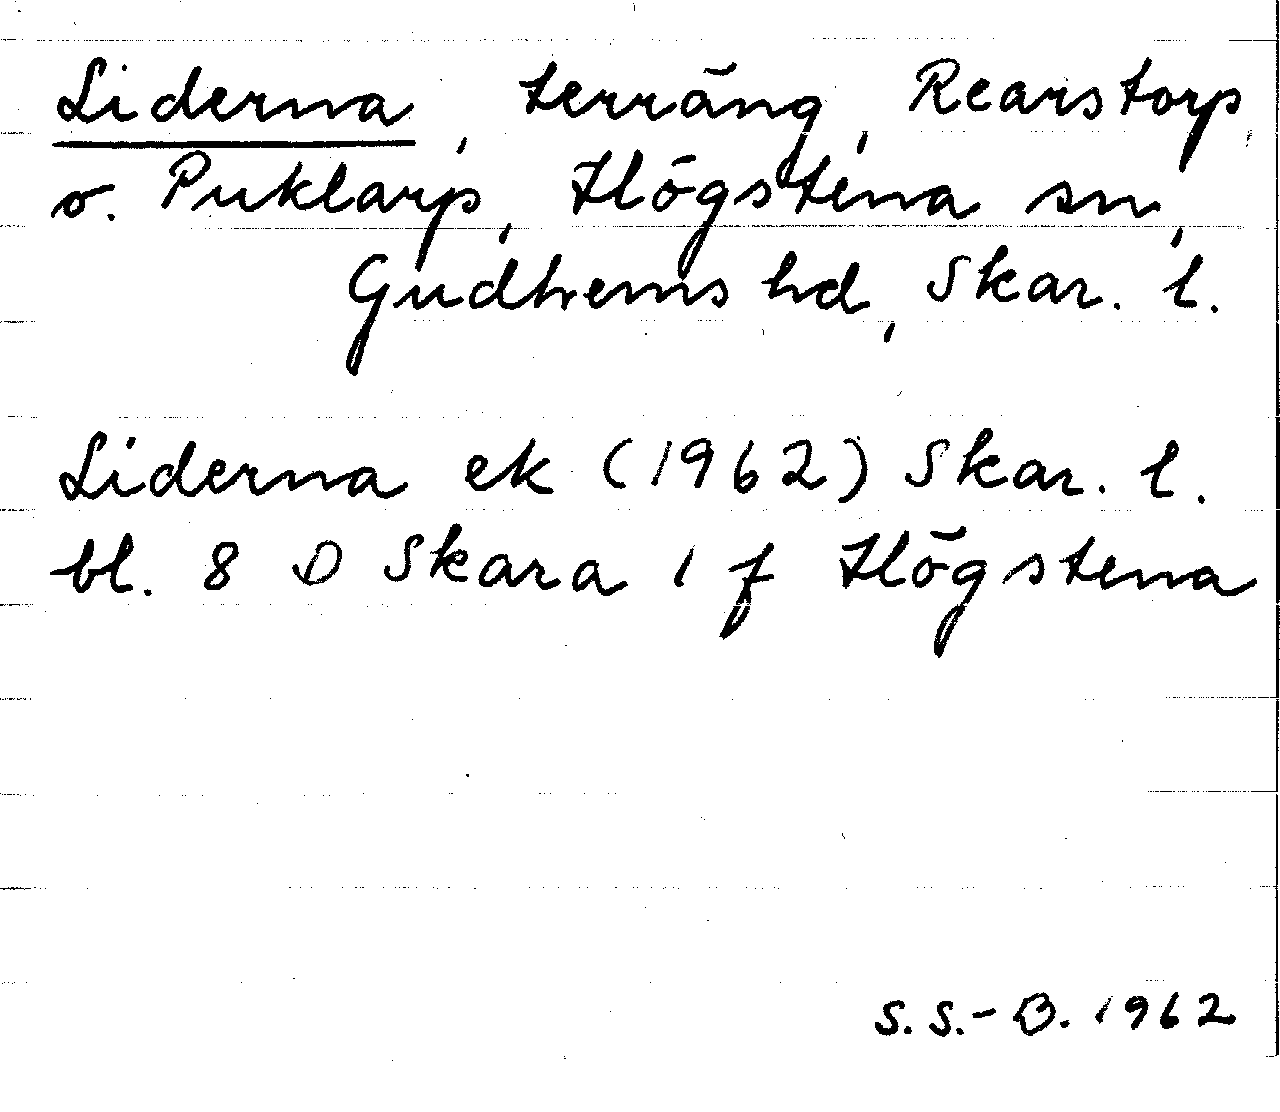 Liderna, terräng, Rearstorp
o. Puklarp, Högstena sn,
Gudhems hd, Skar. l.
Liderna ek (1962) Skar. l.
bl. 8 D Skara 1 f Högstena
S. S.-B. 1962